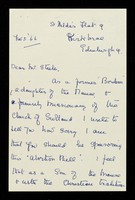 St Hilda's Flat 9
Kirkbrae
Nov 3. 66 Edinburgh 9
Dear Mr. Steele,
As a former Borderer
& daughter of the Manse &
a formerly Missionary of the
Church of Scotland I write to
tell you how sorry I am
that you should be sponsoring
this "Abortion Bill" I feel
that as a Son of the Manse
& with the Christian tradition